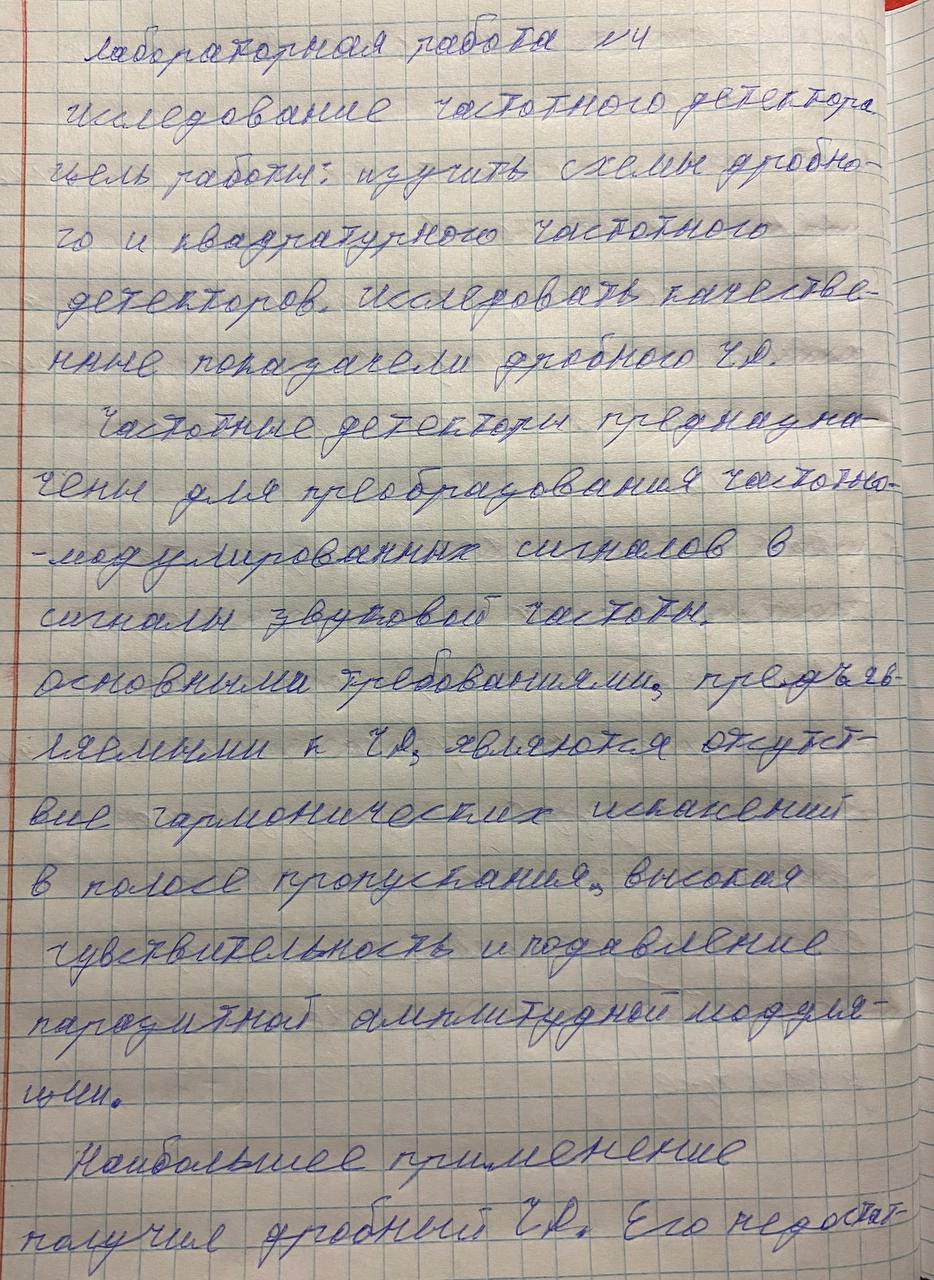 Лабораторная работа №4
Исследование частотного детектора.
Цель работы: изучить схемы дробно-
го и квадратурного частотного
детекторов. Исследовать качестве-
нные показатели дробного ЧД.
Частотные детекторы предназна-
чены для преобразования частотно-
-модулированных сигналов в
сигналы звуковой частоты.
Основными требованиями, предъяв-
ляемыми к ЧД, являются отсутст-
вие гармонических искажений
в полосе пропускания, высокая
чувствительность и подавление
паразитной амплитудной модуля-
ции.
Наибольшее применение
получил дробный ЧД. Его недостат-